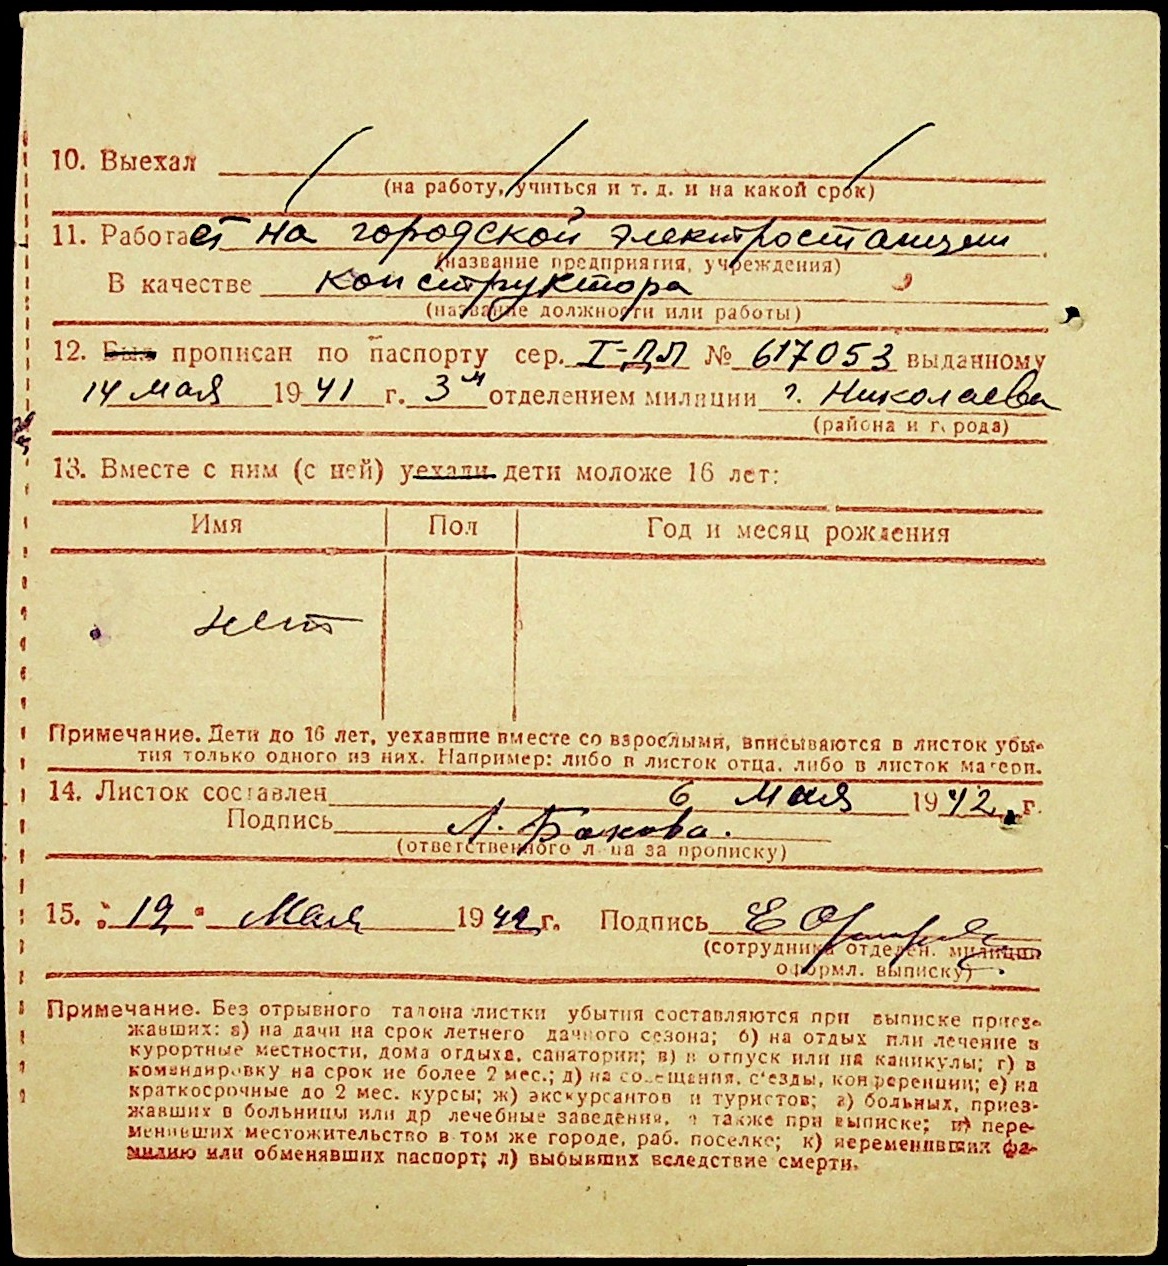 10. Выехал
(на работу, учиться и т. д. и на какой срок)
11. Работает на городской электростанции
(название предприятия, учреждения)
В качестве конструктора
(название должности или работы)
12. Был прописан по паспорту сер. I-ДЛ № 617053 выданному
14 мая 1941 г. 3м отделением милиции г. Николаева
(района и города)
13. Вместе с ним (с ней) уехали дети моложе 16 лет:
Имя Пол Год и месяц рождения
нет
Примечание. Дети до 16 лет, уехавшие вместе со взрослыми, вписываются в листок убы-
тия только одного из них. Например: либо в листок отца, либо в листок матери.
14. Листок составлен 6 мая 1942 г.
Подпись Л. Бакова.
(ответственного лица за прописку)
15. "12" Мая 1942 г. Подпись Е
(сотрудника отделен. милиции
оформл. выписку)
Примечание. Без отрывного талона листки убытия составляются при выписке приез-
жавших: а) на дачи на срок летнего дачного сезона; б) на отдых или лечение в
курортные местности, дома отдыха, санатории; в) в отпуск или на каникулы; г) в
командировку на срок не более 2 мес.; д) на совещания, съезды, конференции; е) на
краткосрочные до 2 мес. курсы; ж) экскурсантов и туристов; з) больных, приез-
жавших в больницы или др лечебные заведения, а также при выписке; и) пере-
менивших местожительство в том же городе, раб. поселке; к) переменивших фа-
милию или обменявших паспорт; л) выбывших вследствие смерти.